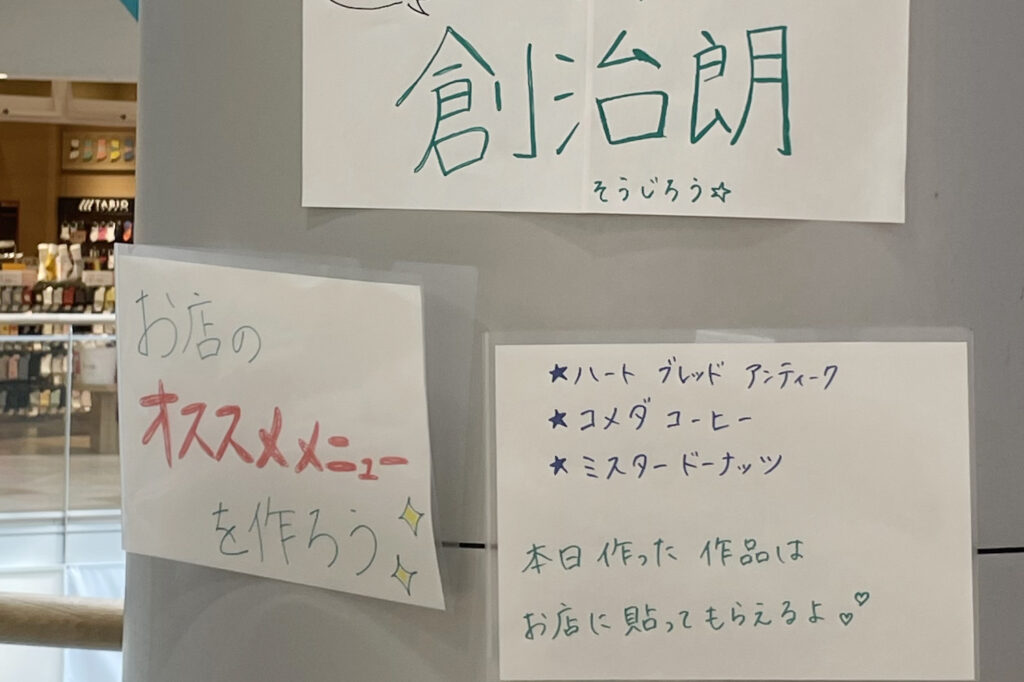 創治朗
そうじろう☆
TABIO
お店の
オススメメニュー
を作ろう
★ハート ブレッド アンティーク
★コメダ コーヒー
★ミスタードーナッツ
本日作った 作品は
お店に貼ってもらえるよ♡♡